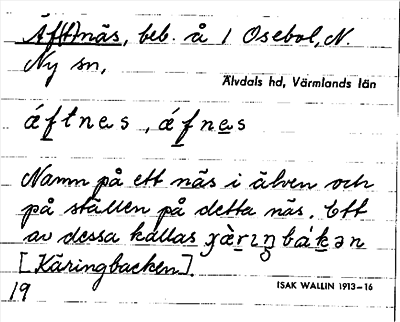 Äf(t)näs, beb. å 1 Osebol, N.
Ny sn,
Älvdals hd, Värmlands län
ǽftnes, ǽfnes
Namn på ett näs i älven och
på ställen på detta näs. Ett
av dessa kallas
[Käringbacken].
19
ISAK WALLIN 1913-16